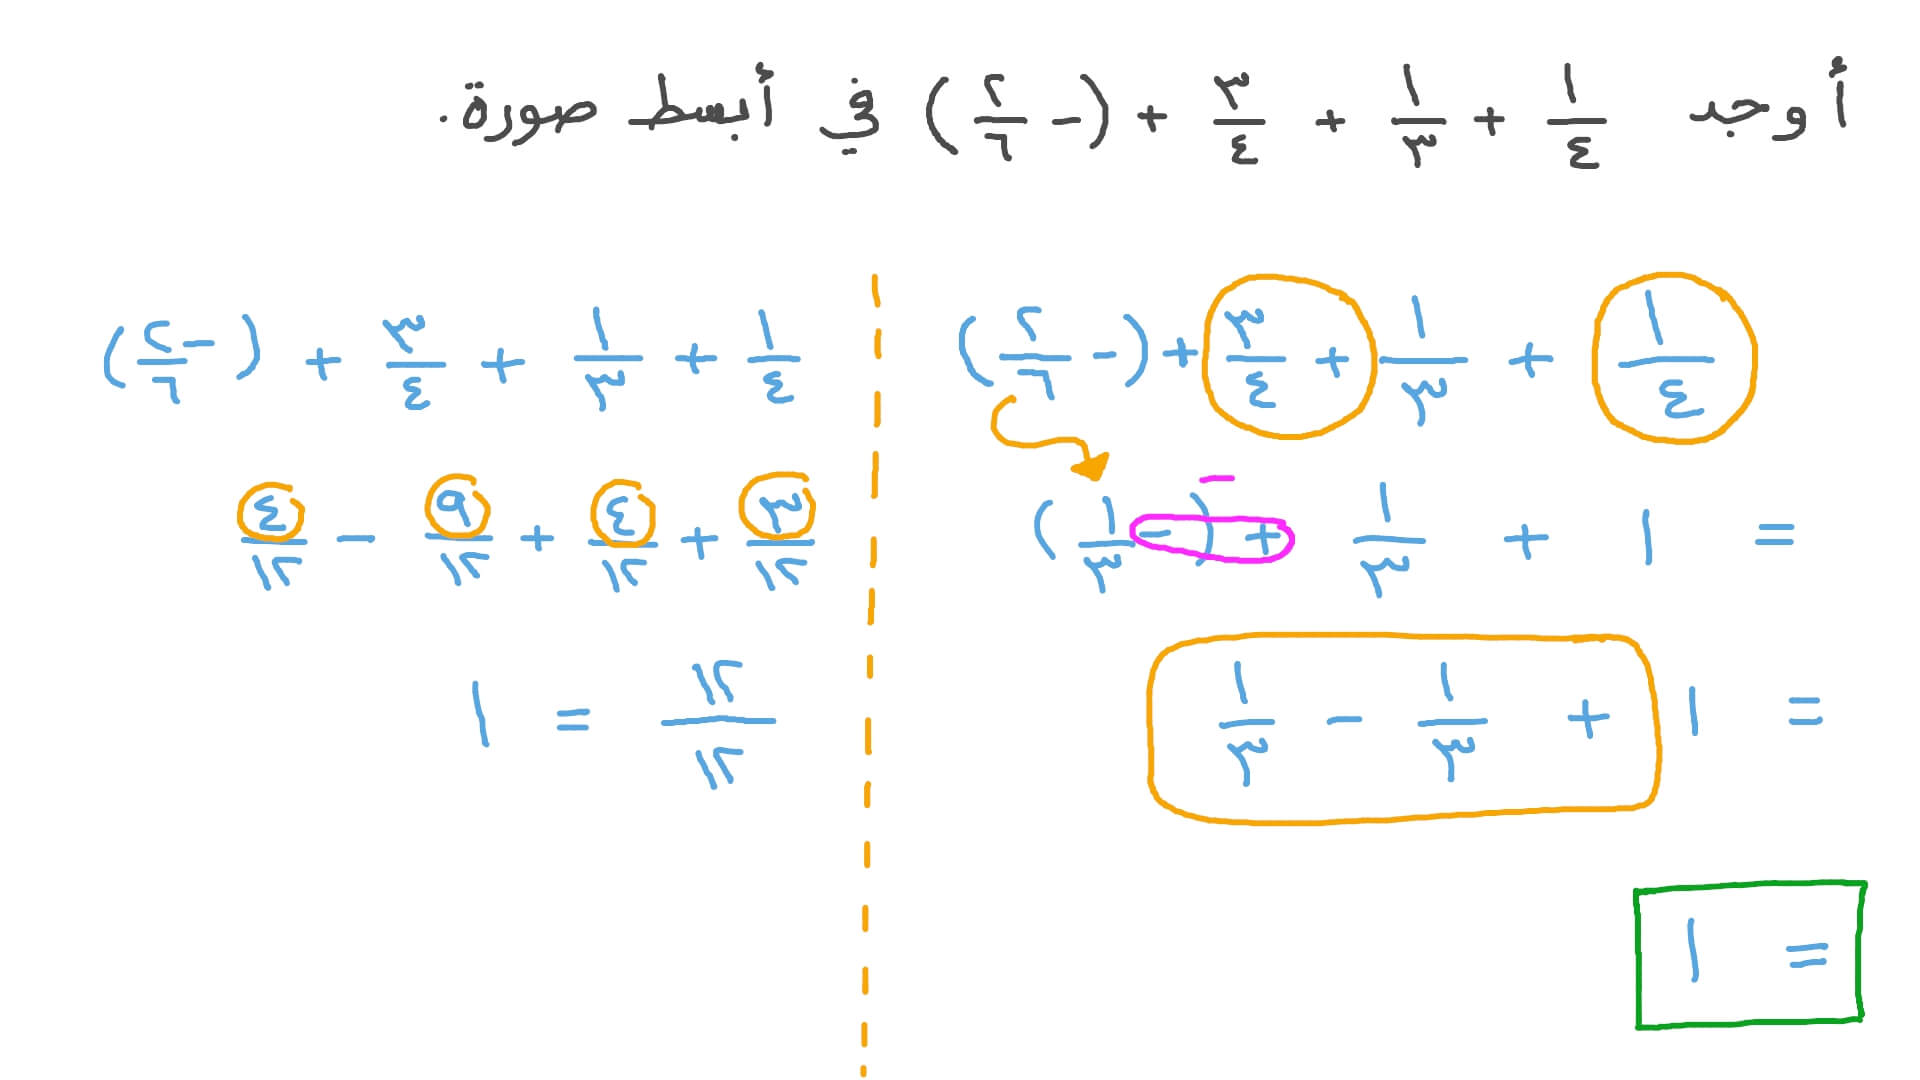 أوجد ١/٤ + ١/٣ + ٣/٤ + (- ٢/٦) في أبسط صورة.
١/٤ + ١/٣ + ٣/٤ + (- ٢/٦)
= ١ + ١/٣ + (- ١/٣)
-
= ١ + ١/٣ - ١/٣
= ١
١/٤ + ١/٣ + ٣/٤ + (- ٢/٦)
٣/١٢ + ٤/١٢ + ٩/١٢ - ٤/١٢
١٢/١٢ = ١